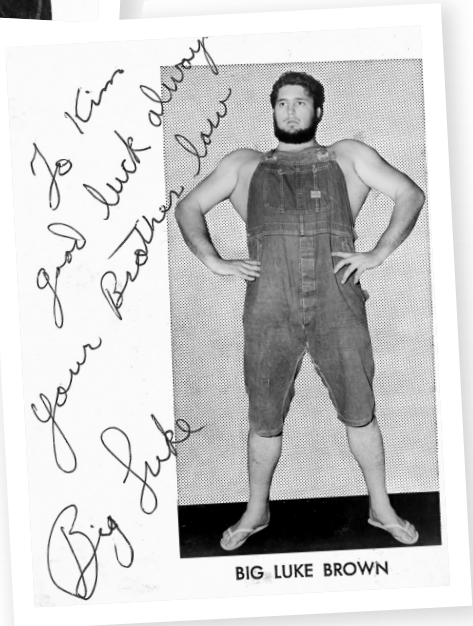 To Kim
good luck always
Your Brother law
Big Luke
BIG LUKE BROWN